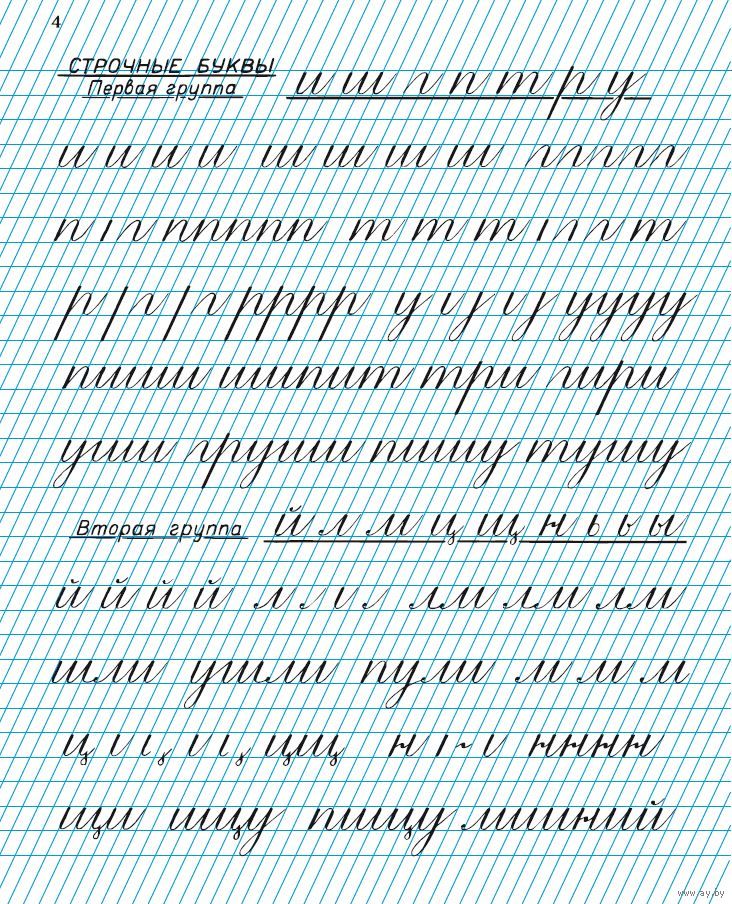 4
СТРОЧНЫЕ БУКВЫ
Первая группа
и ш г п т р у
и и и и ш ш ш ш
п ппппп т т т т
р рррр у уууу
пиши шипит три гири
уши груши пишу тушу
Вторая группа й л м ц щ н ь ъ ы
й й й й л лм лм лм
шли ушли пули м м м
ц цщ н нннн
щи ищу пищу лишний
www.ay.by